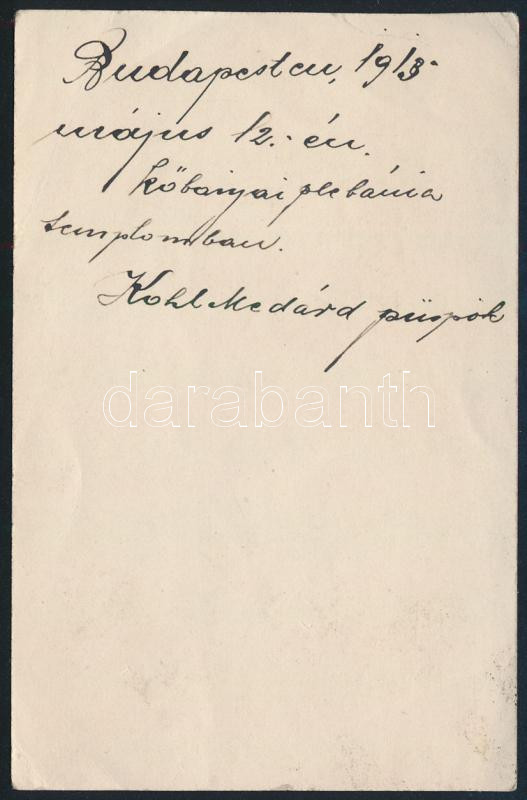 Budapesten, 1913.
május 12.-én.
kőbányai plebánia
templomban.
Kohl Medárd püspök
darabanth